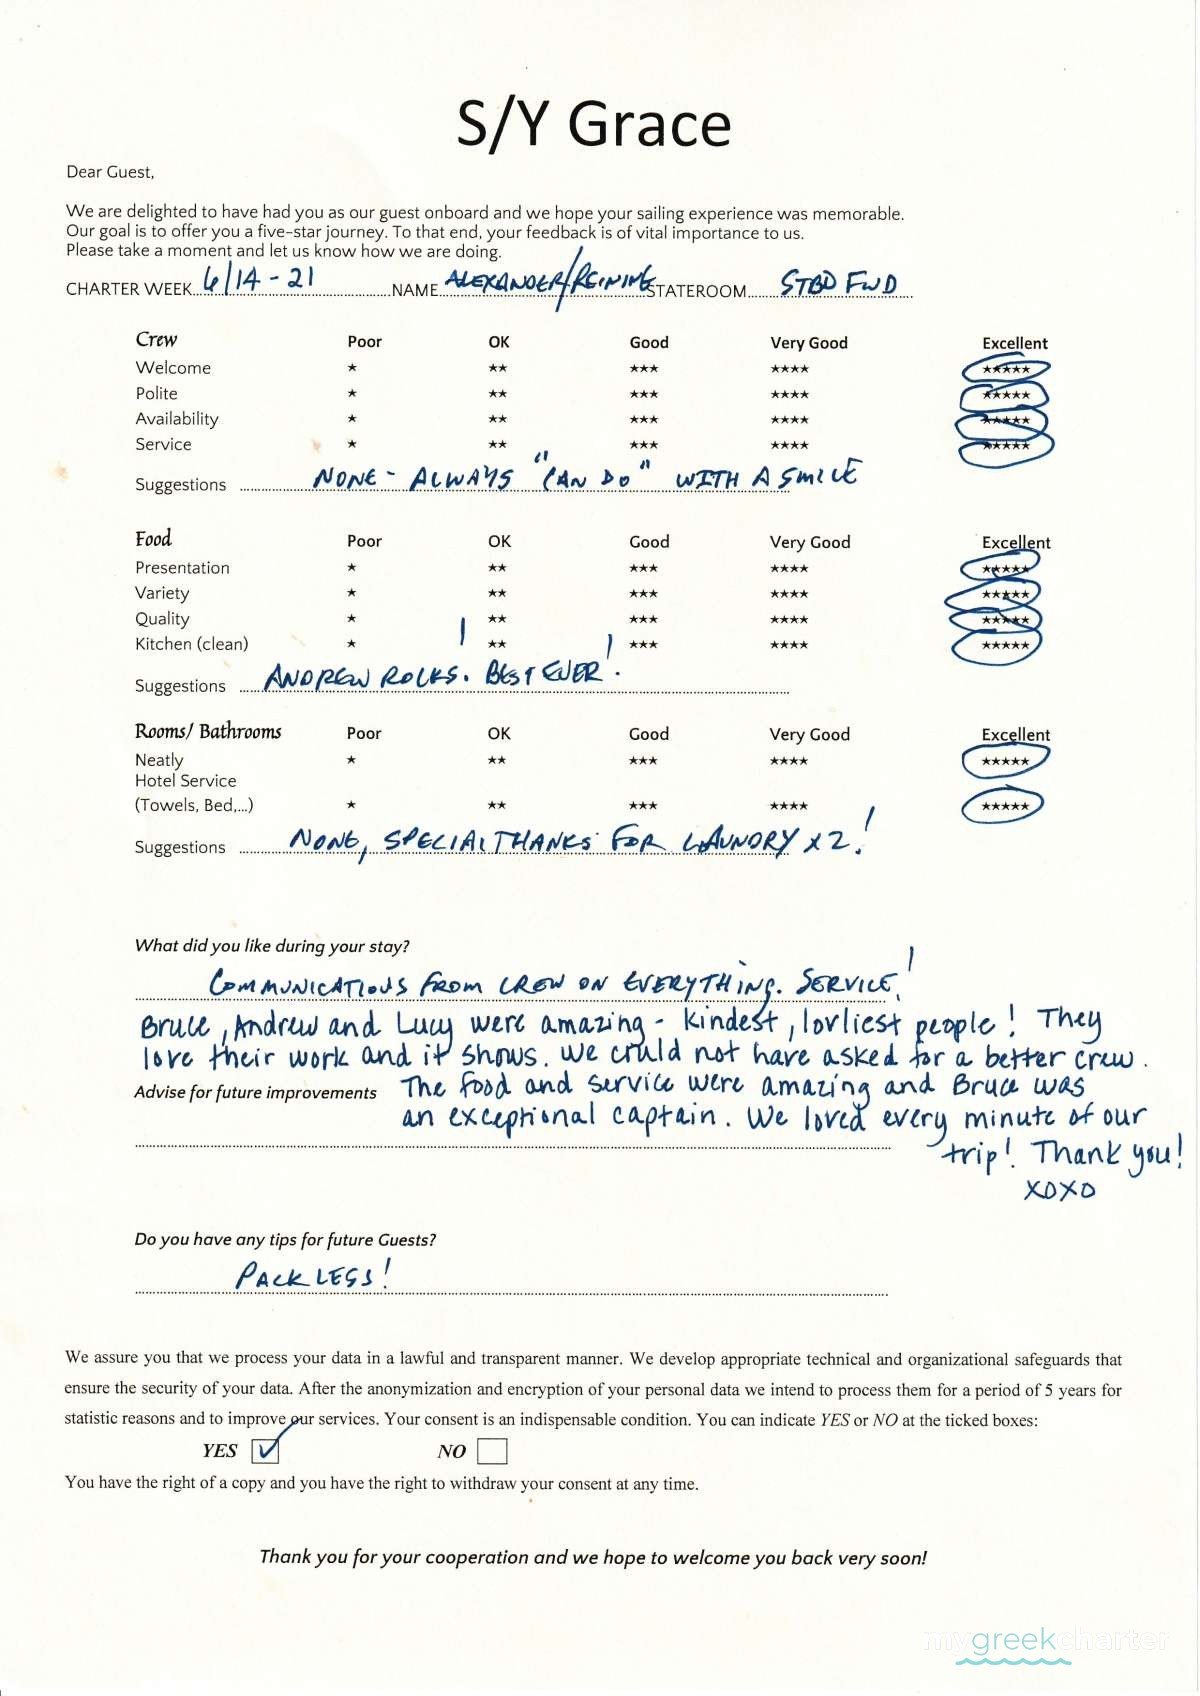 S/Y Grace
Dear Guest,
We are delighted to have had you as our guest onboard and we hope your sailing experience was memorable.
Our goal is to offer you a five-star journey. To that end, your feedback is of vital importance to us.
Please take a moment and let us know how we are doing.
CHARTER WEEK 6/14-21 NAME ALEXANDER/REINING STATEROOM STBD FWD
Crew Poor OK Good Very Good Excellent
Welcome ★ ★★ ★★★ ★★★★ ★★★★★
Polite ★ ★★ ★★★ ★★★★ ★★★★★
Availability ★ ★★ ★★★ ★★★★ ★★★★★
Service ★ ★★ ★★★ ★★★★ ★★★★★
Suggestions NONE - ALWAYS "CAN DO" WITH A SMILE
Food Poor OK Good Very Good Excellent
Presentation ★ ★★ ★★★ ★★★★ ★★★★★
Variety ★ ★★ ★★★ ★★★★ ★★★★★
Quality ★ ★★ ★★★ ★★★★ ★★★★★
Kitchen (clean) ★ ★★ ★★★ ★★★★ ★★★★★
Suggestions ANDREW ROCKS! BEST EVER!
Rooms/ Bathrooms Poor OK Good Very Good Excellent
Neatly ★ ★★ ★★★ ★★★★ ★★★★★
Hotel Service
(Towels, Bed,...) ★ ★★ ★★★ ★★★★ ★★★★★
Suggestions NONE, SPECIAL THANKS FOR LAUNDRY x 2!
What did you like during your stay?
COMMUNICATIOUS FROM CREW ON EVERYTHING. SERVICE!
Bruce, Andrew and Lucy were amazing - kindest, lovliest people! They
love their work and it shows. We could not have asked for a better crew.
Advise for future improvements The food and service were amazing and Bruce was
an exceptional captain. We loved every minute of our
trip! Thank you!
XOXO
Do you have any tips for future Guests?
PACK LESS!
We assure you that we process your data in a lawful and transparent manner. We develop appropriate technical and organizational safeguards that
ensure the security of your data. After the anonymization and encryption of your personal data we intend to process them for a period of 5 years for
statistic reasons and to improve our services. Your consent is an indispensable condition. You can indicate YES or NO at the ticked boxes:
YES ☑ NO ☐
You have the right of a copy and you have the right to withdraw your consent at any time.
Thank you for your cooperation and we hope to welcome you back very soon!
mygreekcharter